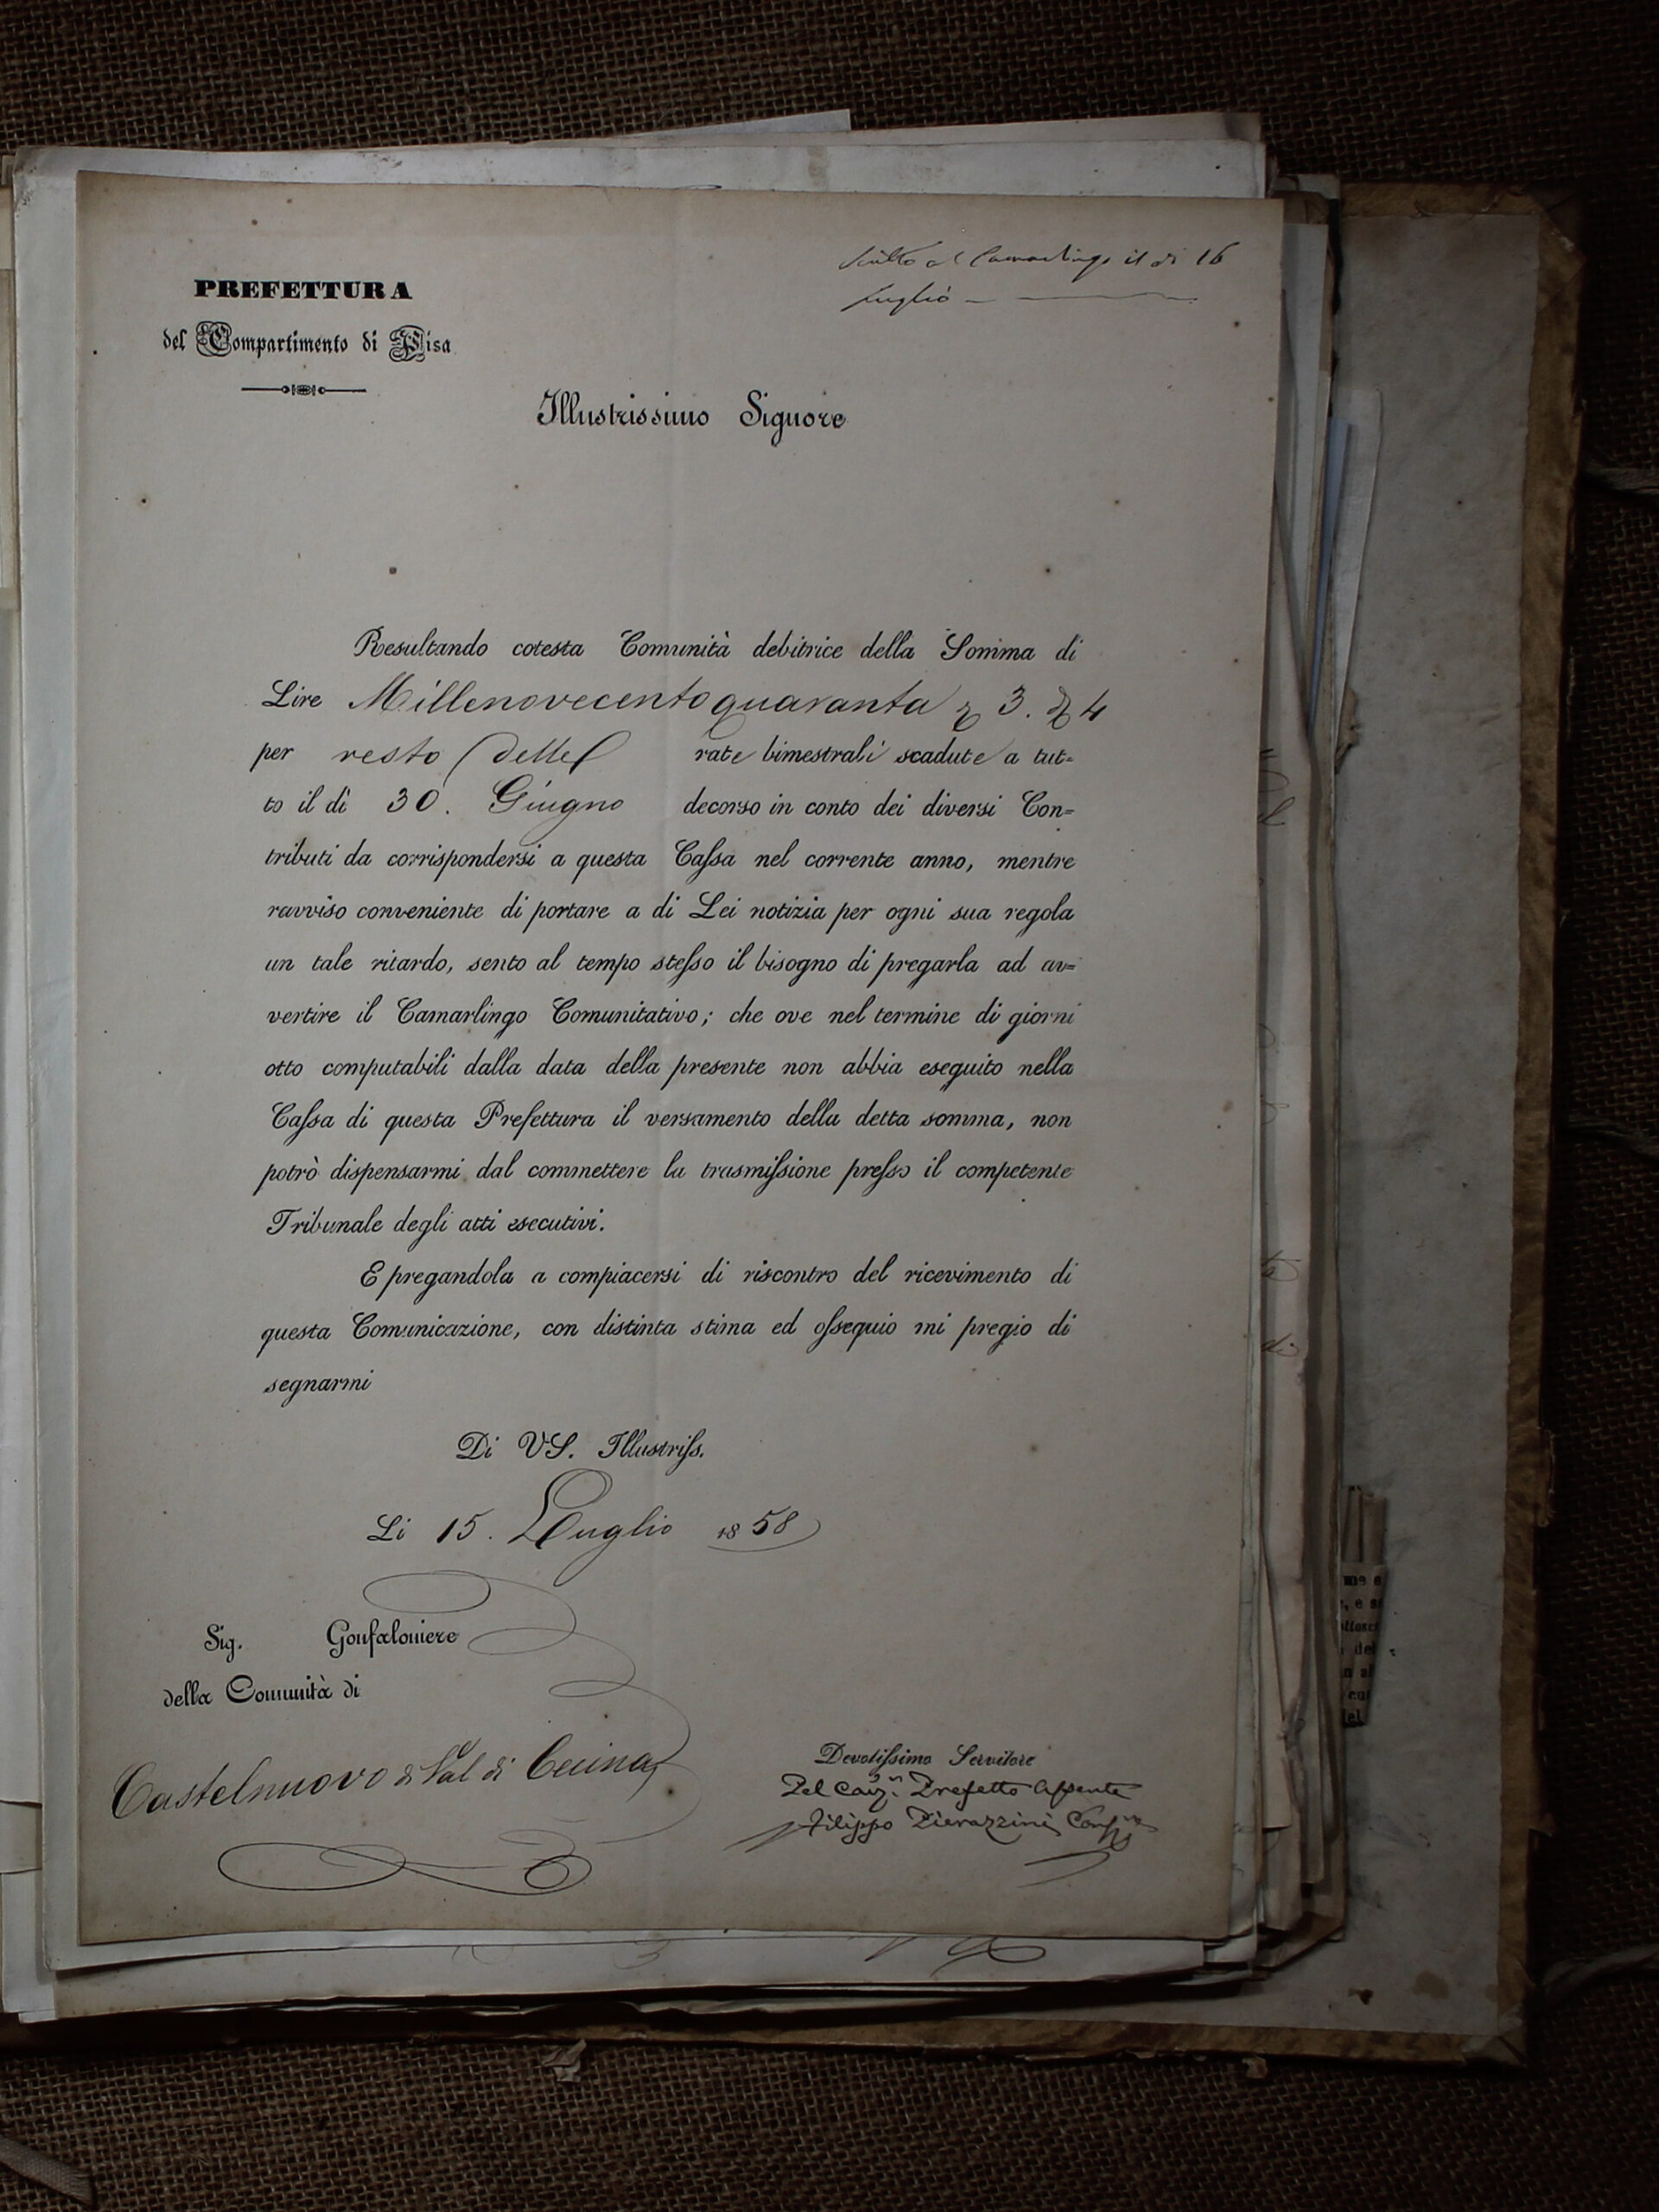 Scritto al Camarlingo il dì 16
Luglio
PREFETTURA
del Compartimento di Pisa
Illustrissimo Signore
Resultando cotesta Comunità debitrice della Somma di
Lire Millenovecentoquaranta 3. 4
per resto delle rate bimestrali scadute a tut=
to il dì 30. Giugno decorso in conto dei diversi Con=
tributi da corrispondersi a questa Caſsa nel corrente anno, mentre
ravviso conveniente di portare a di Lei notizia per ogni sua regola
un tale ritardo, sento al tempo steſso il bisogno di pregarla ad av=
vertire il Camarlingo Comunitativo; che ove nel termine di giorni
otto computabili dalla data della presente non abbia eseguito nella
Caſsa di questa Prefettura il versamento della detta somma, non
potrò dispensarmi dal commettere la trasmiſsione preſso il competente
Tribunale degli atti esecutivi.
E pregandola a compiacersi di riscontro del ricevimento di
questa Comunicazione, con distinta stima ed oſsequio mi pregio di
segnarmi
Di VS. Illustriſs.
Li 15. Luglio 1858
Sig. Gonfaloniere
della Comunità di
Castelnuovo di Val di Cecina
Devotiſsimo Servitore
Pel Prefetto Aſsente
Filippo Pierazzini